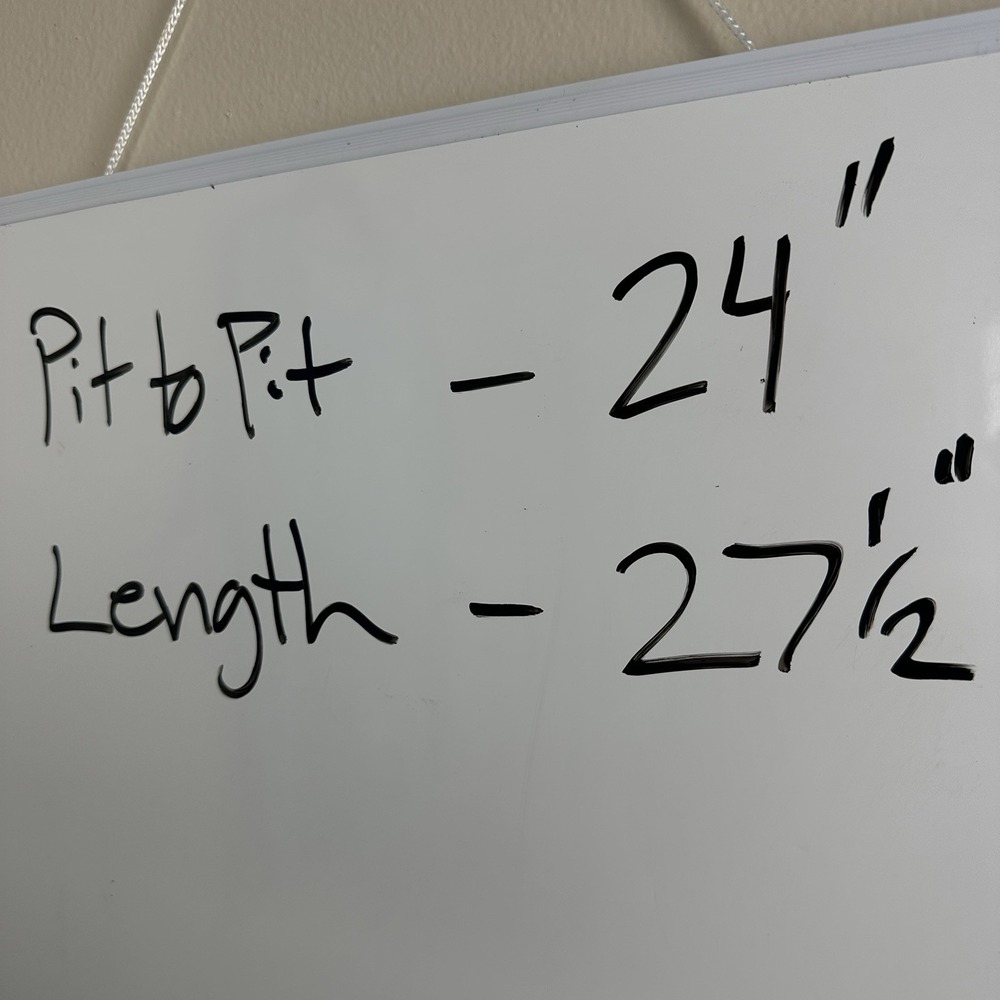 Pit to Pit - 24"
Length - 27 1/2"